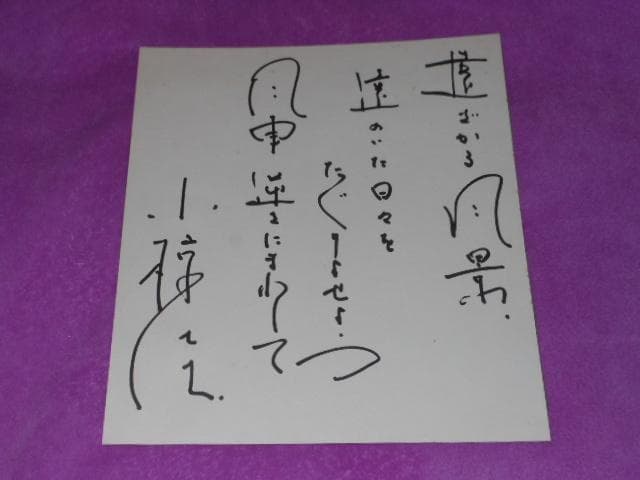 遠ざかる風景
遠のいた日々を
たぐりよせよう
風車逆さにまわして
小椋佳